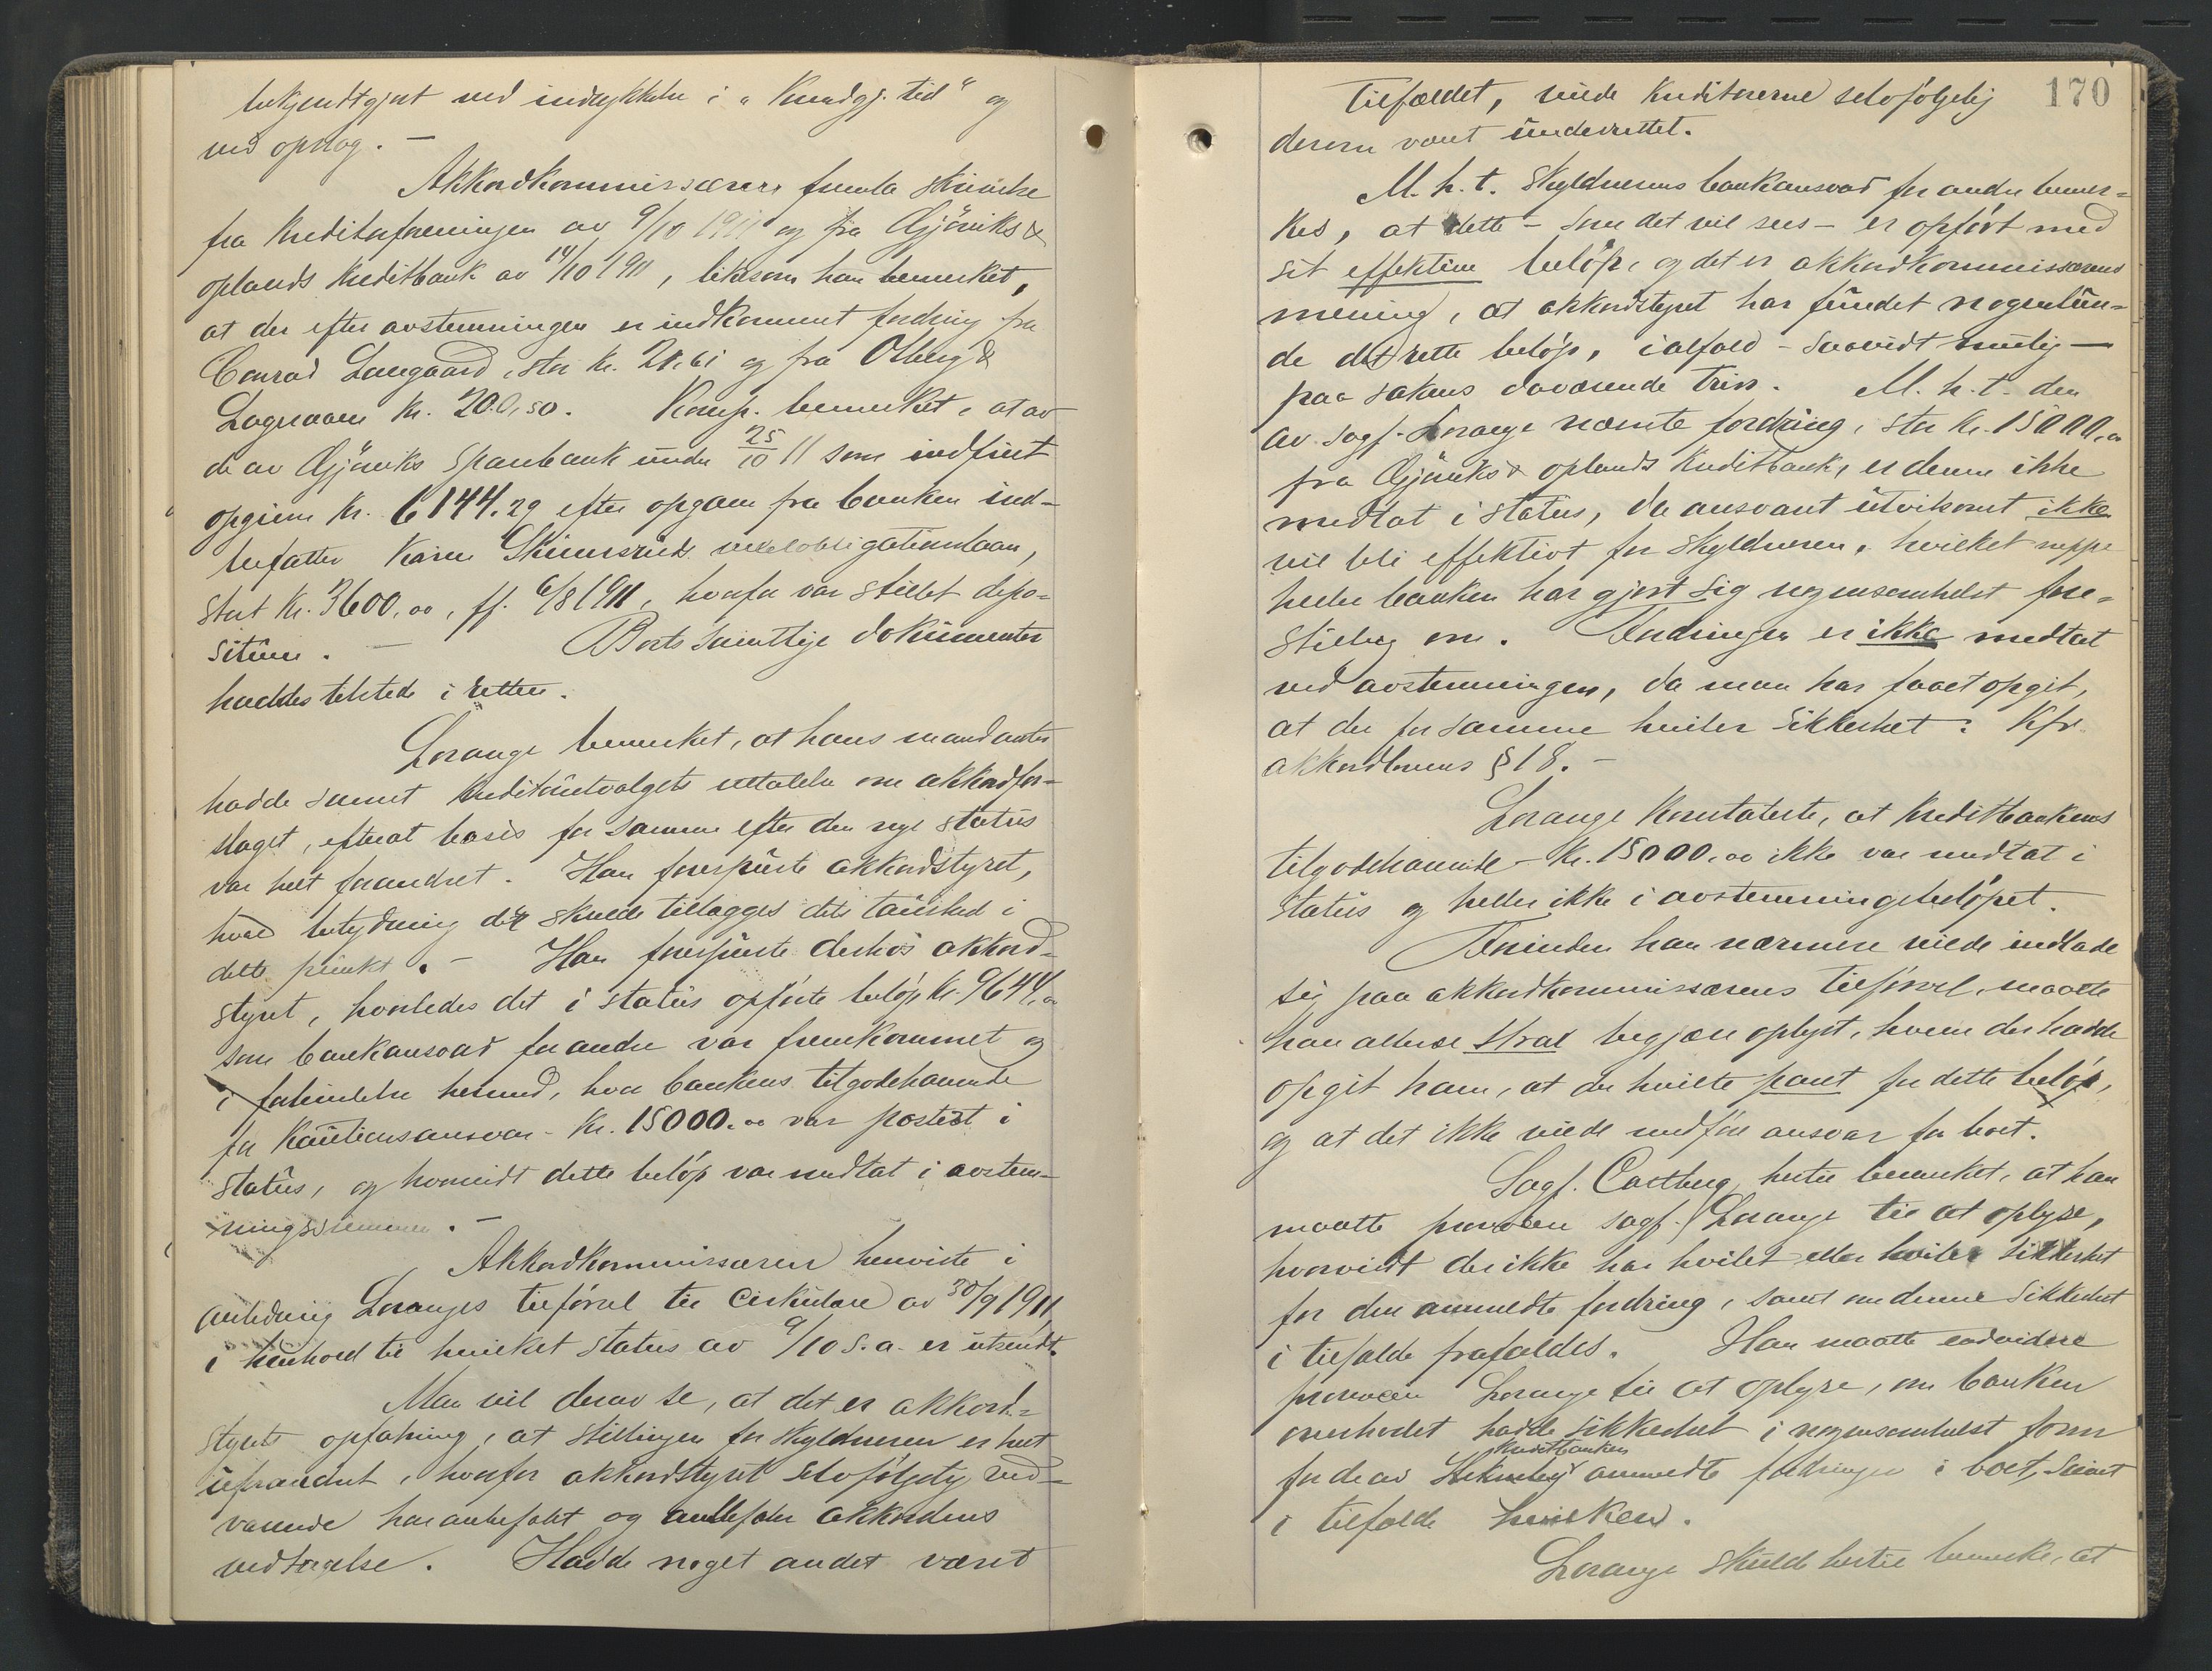 bekjendtgjort ved indrykkelse i "Kundgj. tid" og
ved opslag. —
Akkordkommissæren fremla skrivelse
fra Kreditorforeningen av 9/10 1911 og fra Gjøviks &
oplands Kreditbank av 14/10 1911, likesom han bemerket,
at der efter avstemningen er indkommet fordring fra
Conrad Langaard, stor kr. 21.61 og fra Osberg &
Lagmaaen kr. 200,50. Komp. bemerket, at av
de av Gjøviks Sparebank under 25/10 11 som indfriet
opgivne kr. 6144.29 efter opgave fra banken ind-
befatter Karen Skiunsrud vekselobligationslaan,
stort kr. 3600,00, ff. 6/8 1911, hvorfor var stillet depo-
situm. — Boets samtlige dokumenter
haddes tilstede i retten.
Lorange bemerket, at hans mandanter
hadde savnet kreditorutvalgets uttalelse om akkordfor-
slaget, efterat basis for samme efter den nye status
var helt forandret. Han forespurte akkordstyret,
hvad betydning der skulde tillægges dets taushed i
dette punkt. — Han forespurte derhos akkord-
styret, hvorledes det i status opførte beløp kr. 9644,00
som bankansvar for andre var fremkommet og
i forbindelse hermed, hvor bankens tilgodehavende
for kautionsansvar - kr. 15000.00 var postert i
status, og hvorvidt dette beløp var medtat i avstem-
ningssummen. —
Akkordkommissæren henviste i
anledning Loranges tilførsel til cirkulære av 30/9 1911,
i henhold til hvilket status av 9/10 s.a. er utsendt.
Man vil derav se, at det er akkord-
styrets opfatning, at stillingen for skyldneren er helt
uforandret, hvorfor akkordstyret selvfølgelig ved-
varende har anbefalet og anbefaler akkordens
vedtagelse. Hadde noget andet været
170
tilfældet, vilde kreditorerne selvfølgelig
derom vært underrettet.
M. h. t. skyldnerens bankansvar for andre bemer-
kes, at dette - som det vil sees - er opført med
sit effektive beløp, og det er akkordkommissærens
mening, at akkordstyret har fundet nogenlun-
de det rette beløp, ialfald - saavidt mulig —
paa sakens daværende trin. M. h. t. den
av sagf. Lorange nævnte fordring, stor kr. 15000,00
fra Gjøviks & oplands Kreditbank, er denne ikke
medtat i status, da ansvaret utvilsomt ikke
vil bli effektivt for skyldneren, hvilket neppe
heller banken har gjort sig nogensomhelst fore-
stilling om. Fordringen er ikke medtat
ved avstemningen, da man har faaet opgit,
at der for samme hviler sikkerhet: Kfr.
akkordlovens § 18. —
Lorange konstaterte, at Kreditbankens
tilgodehavende - kr. 15000,00 ikke var medtat i
status og heller ikke i avstemningsbeløpet.
Forinden han nærmere vilde indlade
sig paa akkordkommissærens tilførsel, maatte
han allerede straks begjære oplyst, hvem der hadde
opgit ham, at der hvilte pant for dette beløp,
og at det ikke vilde medføre ansvar for boet.
Sagf. Castberg hertil bemerket, at han
maatte provosere sagf. Lorange til at oplyse,
hvorvidt der ikke har hvilet eller hviler sikkerhet
for den anmeldte fordring, samt om denne sikkerhet
i tilfælde frafaldes. Han maatte endvidere
provosere Lorange til at oplyse, om banken
overhodet hadde sikkerhet i nogensomhelst form
Kreditbanken
for de av anmeldte fordringer i boet, samt
i tilfælde hvilken.
Lorange skulde hertil bemerke, at